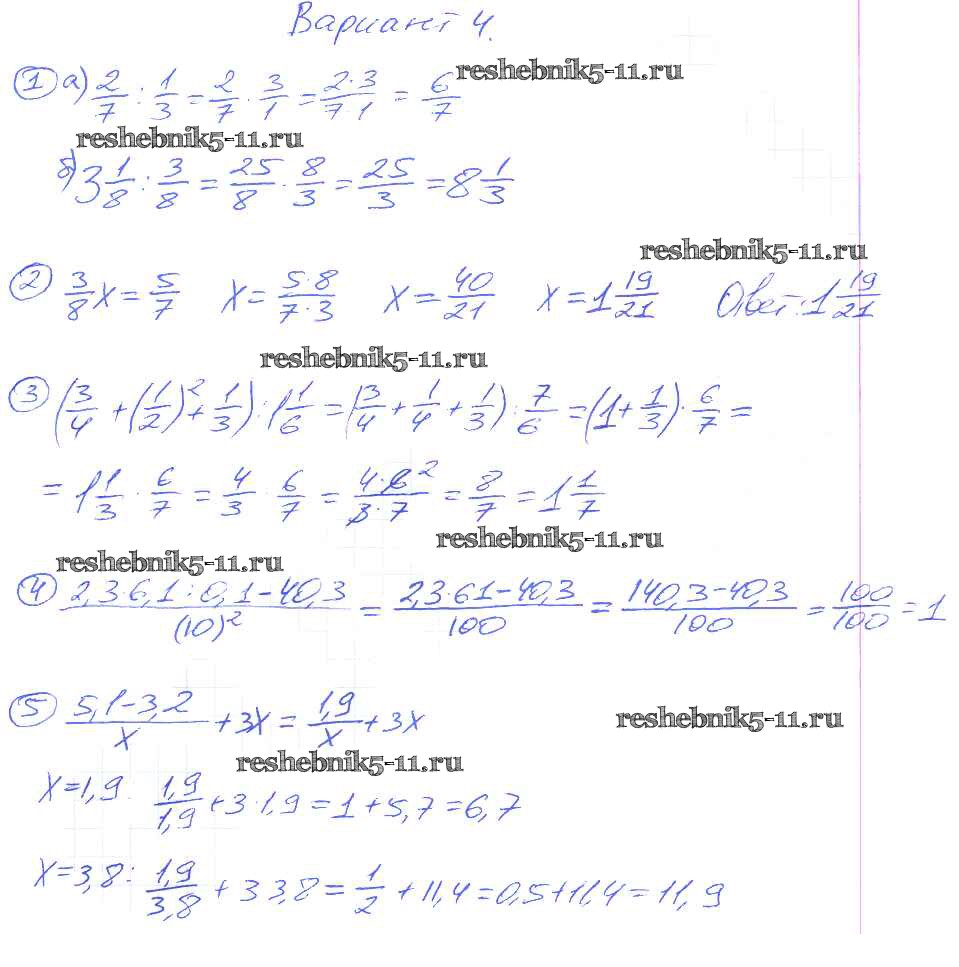 Вариант 4.
① а) 2/7 : 1/3 = 2/7 · 3/1 = 2·3/7·1 = 6/7
reshebnik5-11.ru
reshebnik5-11.ru
б) 3 1/8 : 3/8 = 25/8 · 8/3 = 25/3 = 8 1/3
reshebnik5-11.ru
② 3/8 x = 5/7 x = 5·8/7·3 x = 40/21 x = 1 19/21 Ответ: 1 19/21
reshebnik5-11.ru
③ (3/4 + (1/2)² + 1/3) : 1 1/6 = (3/4 + 1/4 + 1/3) : 7/6 = (1 + 1/3) · 6/7 =
= 1 1/3 · 6/7 = 4/3 · 6/7 = 4·6 2/3·7 = 8/7 = 1 1/7
reshebnik5-11.ru
reshebnik5-11.ru
④ 2,3·6,1:0,1-40,3/(10)² = 2,3·61-40,3/100 = 140,3-40,3/100 = 100/100 = 1
⑤ 5,1-3,2/x + 3x = 1,9/x + 3x
reshebnik5-11.ru
reshebnik5-11.ru
x=1,9: 1,9/1,9 + 3·1,9 = 1 + 5,7 = 6,7
x=3,8: 1,9/3,8 + 3 3,8 = 1/2 + 11,4 = 0,5+11,4 = 11,9